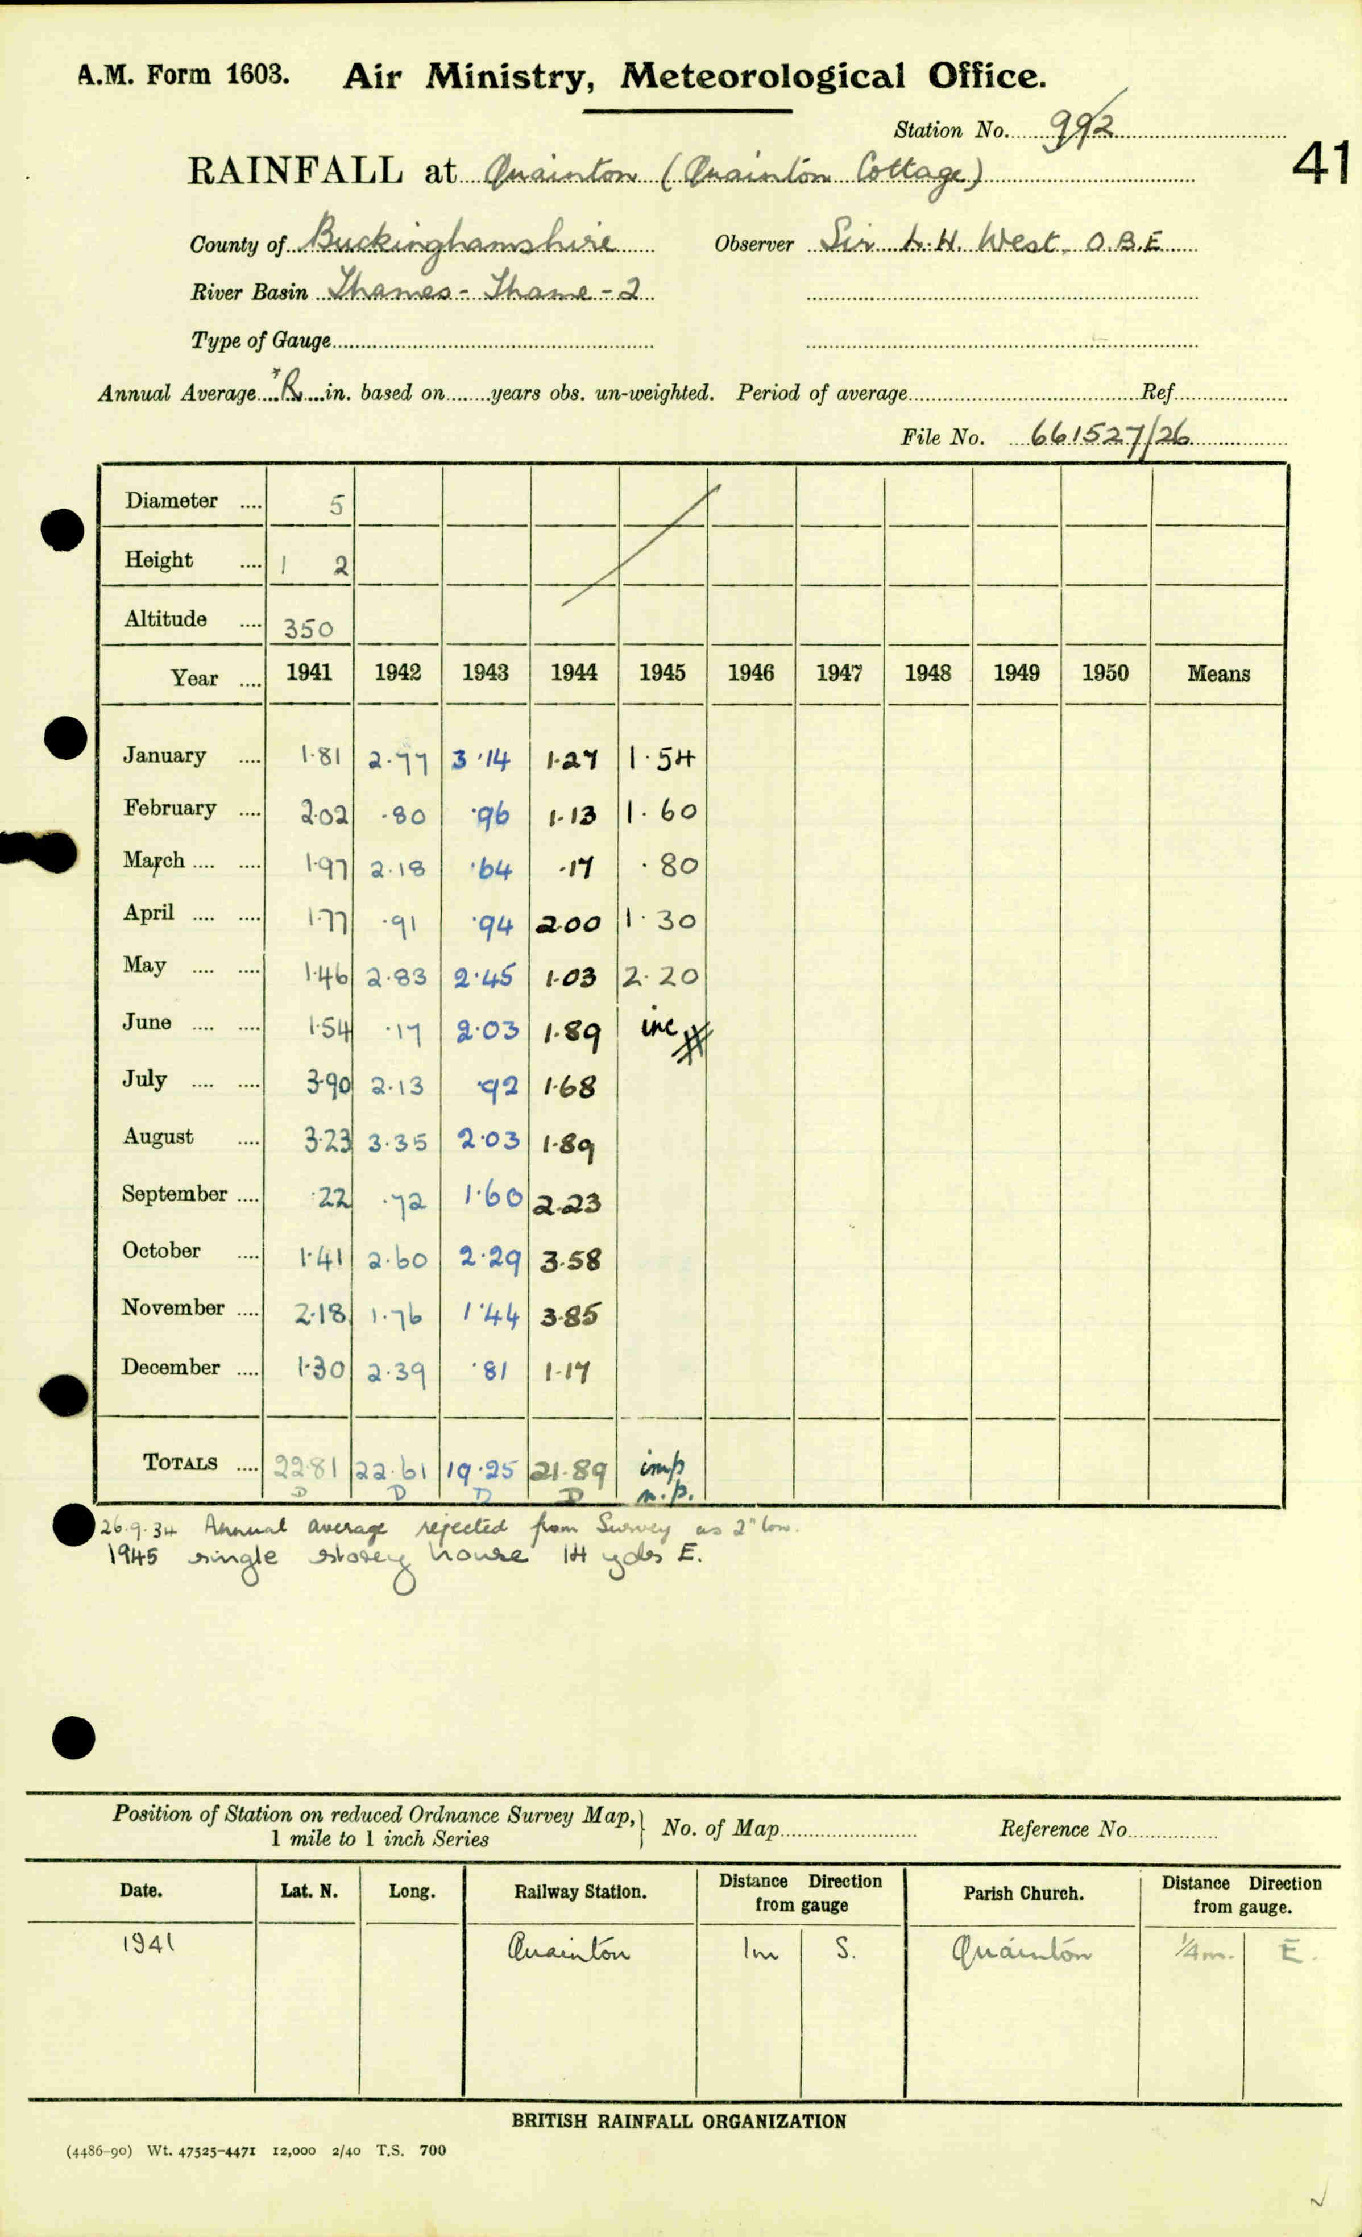 A.M. Form 1603. Air Ministry, Meteorological Office.
Station No. 992
41
RAINFALL at Quainton (Quainton Cottage)
County of Buckinghamshire Observer Sir L.H. West. O.B.E
River Basin Thames - Thame - 2
Type of Gauge
Annual Average *R in. based on years obs. un-weighted. Period of average Ref
File No. 661527/26
Diameter .... 5
Height .... 1 2
Altitude .... 350
Year .... 1941 1942 1943 1944 1945 1946 1947 1948 1949 1950 Means
January .... 1.81 2.77 3.14 1.27 1.54
February .... 2.02 .80 .96 1.13 1.60
March .... .... 1.97 2.18 .64 .17 .80
April .... .... 1.77 .91 .94 2.00 1.30
May .... .... 1.46 2.83 2.45 1.03 2.20
June .... .... 1.54 .17 2.03 1.89 inc
July .... .... 3.90 2.13 .92 1.68
August .... 3.23 3.35 2.03 1.89
September .... .22 .72 1.60 2.23
October .... 1.41 2.60 2.29 3.58
November .... 2.18 1.76 1.44 3.85
December .... 1.30 2.39 .81 1.17
TOTALS .... 22.81 22.61 19.25 21.89 imp
D D D D n.p.
26.9.34 Annual average rejected from Survey as 2" low.
1945 single storey house 14 yds E.
Position of Station on reduced Ordnance Survey Map, 1 mile to 1 inch Series } No. of Map Reference No
Date. Lat. N. Long. Railway Station. Distance Direction from gauge Parish Church. Distance Direction from gauge.
1941 Quainton 1m S. Quainton 1/4 m. E.
BRITISH RAINFALL ORGANIZATION
(4486-90) Wt. 47525-4471 12,000 2/40 T.S. 700